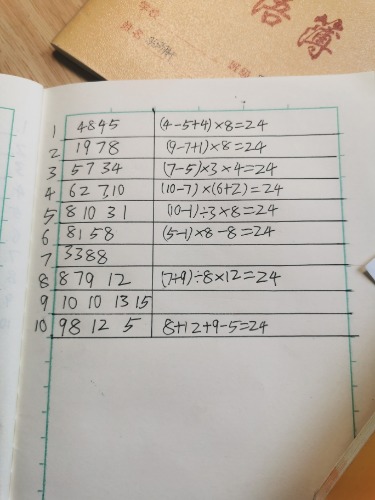 学校
语簿
姓名
班级
1 4845 (4-5+4)×8=24
2 1978 (9-7+1)×8=24
3 5734 (7-5)×3×4=24
4 62 7,10 (10-7)×(6+2)=24
5 8 10 3 1 (10-1)÷3×8=24
6 81 58 (5-1)×8-8=24
7 3388
8 879 12 (7+9)÷8×12=24
9 10 10 13 15
10 98 12 5 8+12+9-5=24